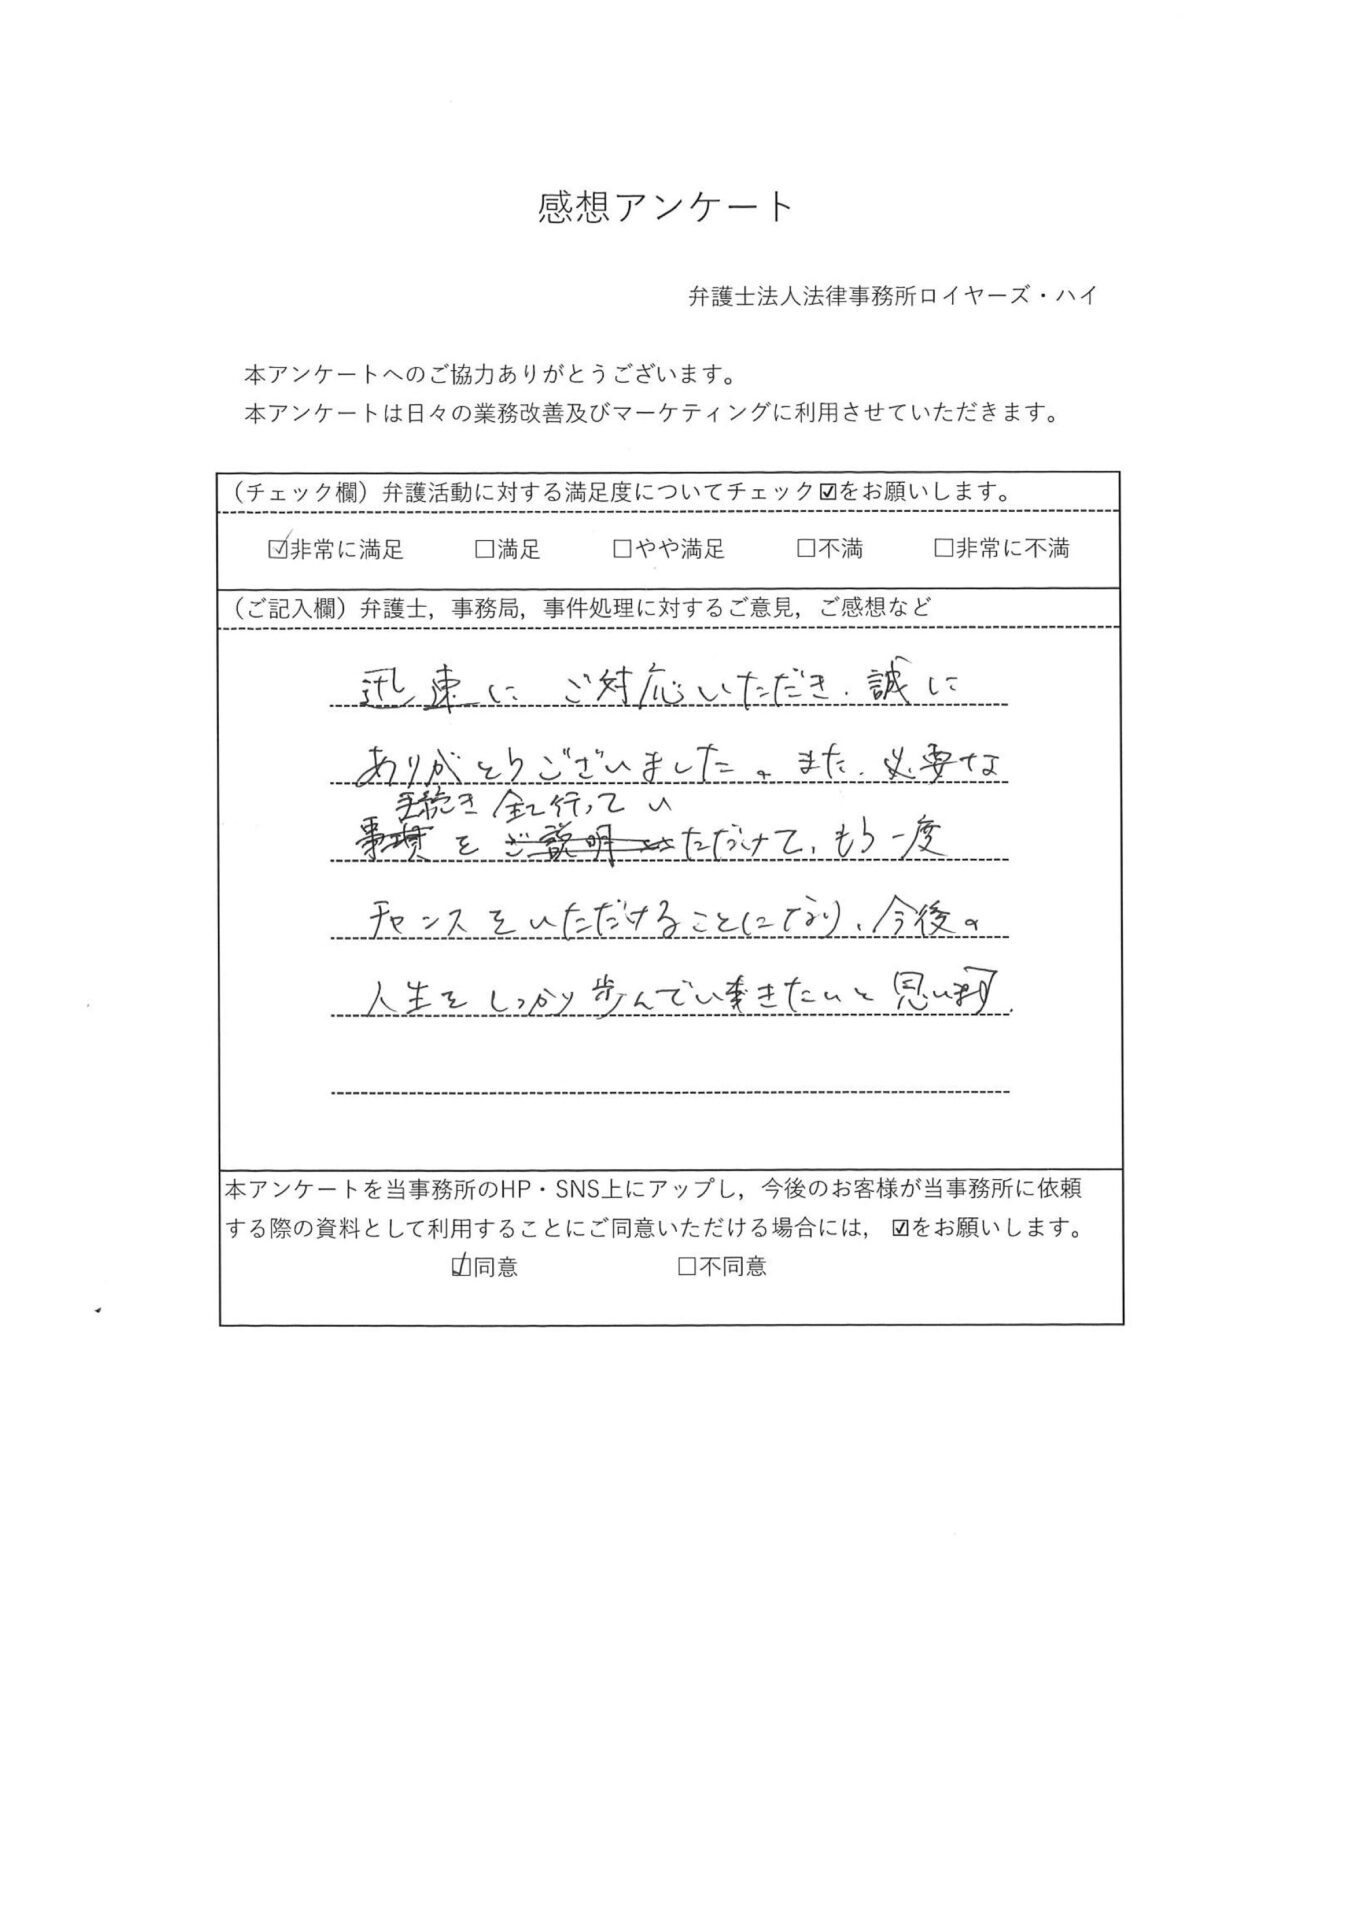 感想アンケート
弁護士法人法律事務所ロイヤーズ・ハイ
本アンケートへのご協力ありがとうございます。
本アンケートは日々の業務改善及びマーケティングに利用させていただきます。
（チェック欄）弁護活動に対する満足度についてチェック☑をお願いします。
☑非常に満足 □満足 □やや満足 □不満 □非常に不満
（ご記入欄）弁護士，事務局，事件処理に対するご意見，ご感想など
迅速に ご対応いただき、誠に
ありがとうございました。また、必要な
手続き 全て行ってい
事項を ご説明 ただけて、もう一度
チャンスをいただけることになり、今後の
人生をしっかり歩んでいきたいと思います。
本アンケートを当事務所のHP・SNS上にアップし，今後のお客様が当事務所に依頼
する際の資料として利用することにご同意いただける場合には，☑をお願いします。
☑同意 □不同意